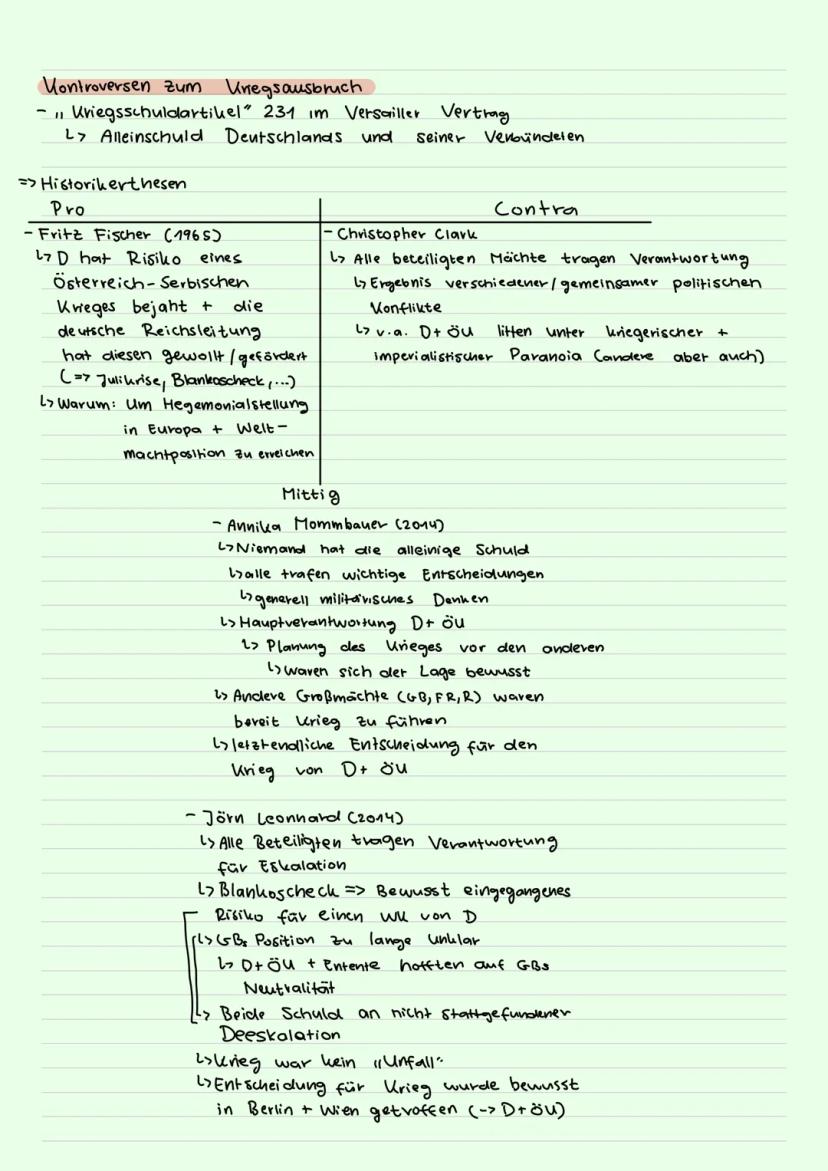 Kontroversen zum Kriegsausbruch
- „Kriegsschuldartikel" 231 im Versailler Vertrag
↳ Alleinschuld Deutschlands und seiner Verbündeten
=> Historikerthesen
Pro
- Fritz Fischer (1965)
↳ D hat Risiko eines
Österreich-Serbischen
Krieges bejaht + die
deutsche Reichsleitung
hat diesen gewollt/gefördert
(=> Julikrise, Blankoscheck,...)
↳ Warum: Um Hegemonialstellung
in Europa + Welt-
machtposition zu erreichen
Contra
- Christopher Clark
↳ Alle beteiligten Mächte tragen Verantwortung
↳ Ergebnis verschiedener/gemeinsamer politischen
Konflikte
↳ v.a. D+ ÖU litten unter kriegerischer +
imperialistischer Paranoia (andere aber auch)
Mittig
- Annika Mommbauer (2014)
↳ Niemand hat die alleinige Schuld
↳ alle trafen wichtige Entscheidungen
↳ generell militärisches Denken
↳ Hauptverantwortung D+ ÖU
↳ Planung des Krieges vor den anderen
↳ waren sich der Lage bewusst
↳ Andere Großmächte (GB, FR, R) waren
bereit Krieg zu führen
↳ letztendliche Entscheidung für den
Krieg von D+ ÖU
- Jörn Leonhard (2014)
↳ Alle Beteiligten tragen Verantwortung
für Eskalation
↳ Blankoscheck => Bewusst eingegangenes
Risiko für einen WK von D
↳ GBs Position zu lange unklar
↳ D+ ÖU + Entente hofften auf GBs
Neutralität
↳ Beide Schuld an nicht stattgefundener
Deeskalation
↳ Krieg war kein „Unfall"
↳ Entscheidung für Krieg wurde bewusst
in Berlin + Wien getroffen (-> D+ ÖU)